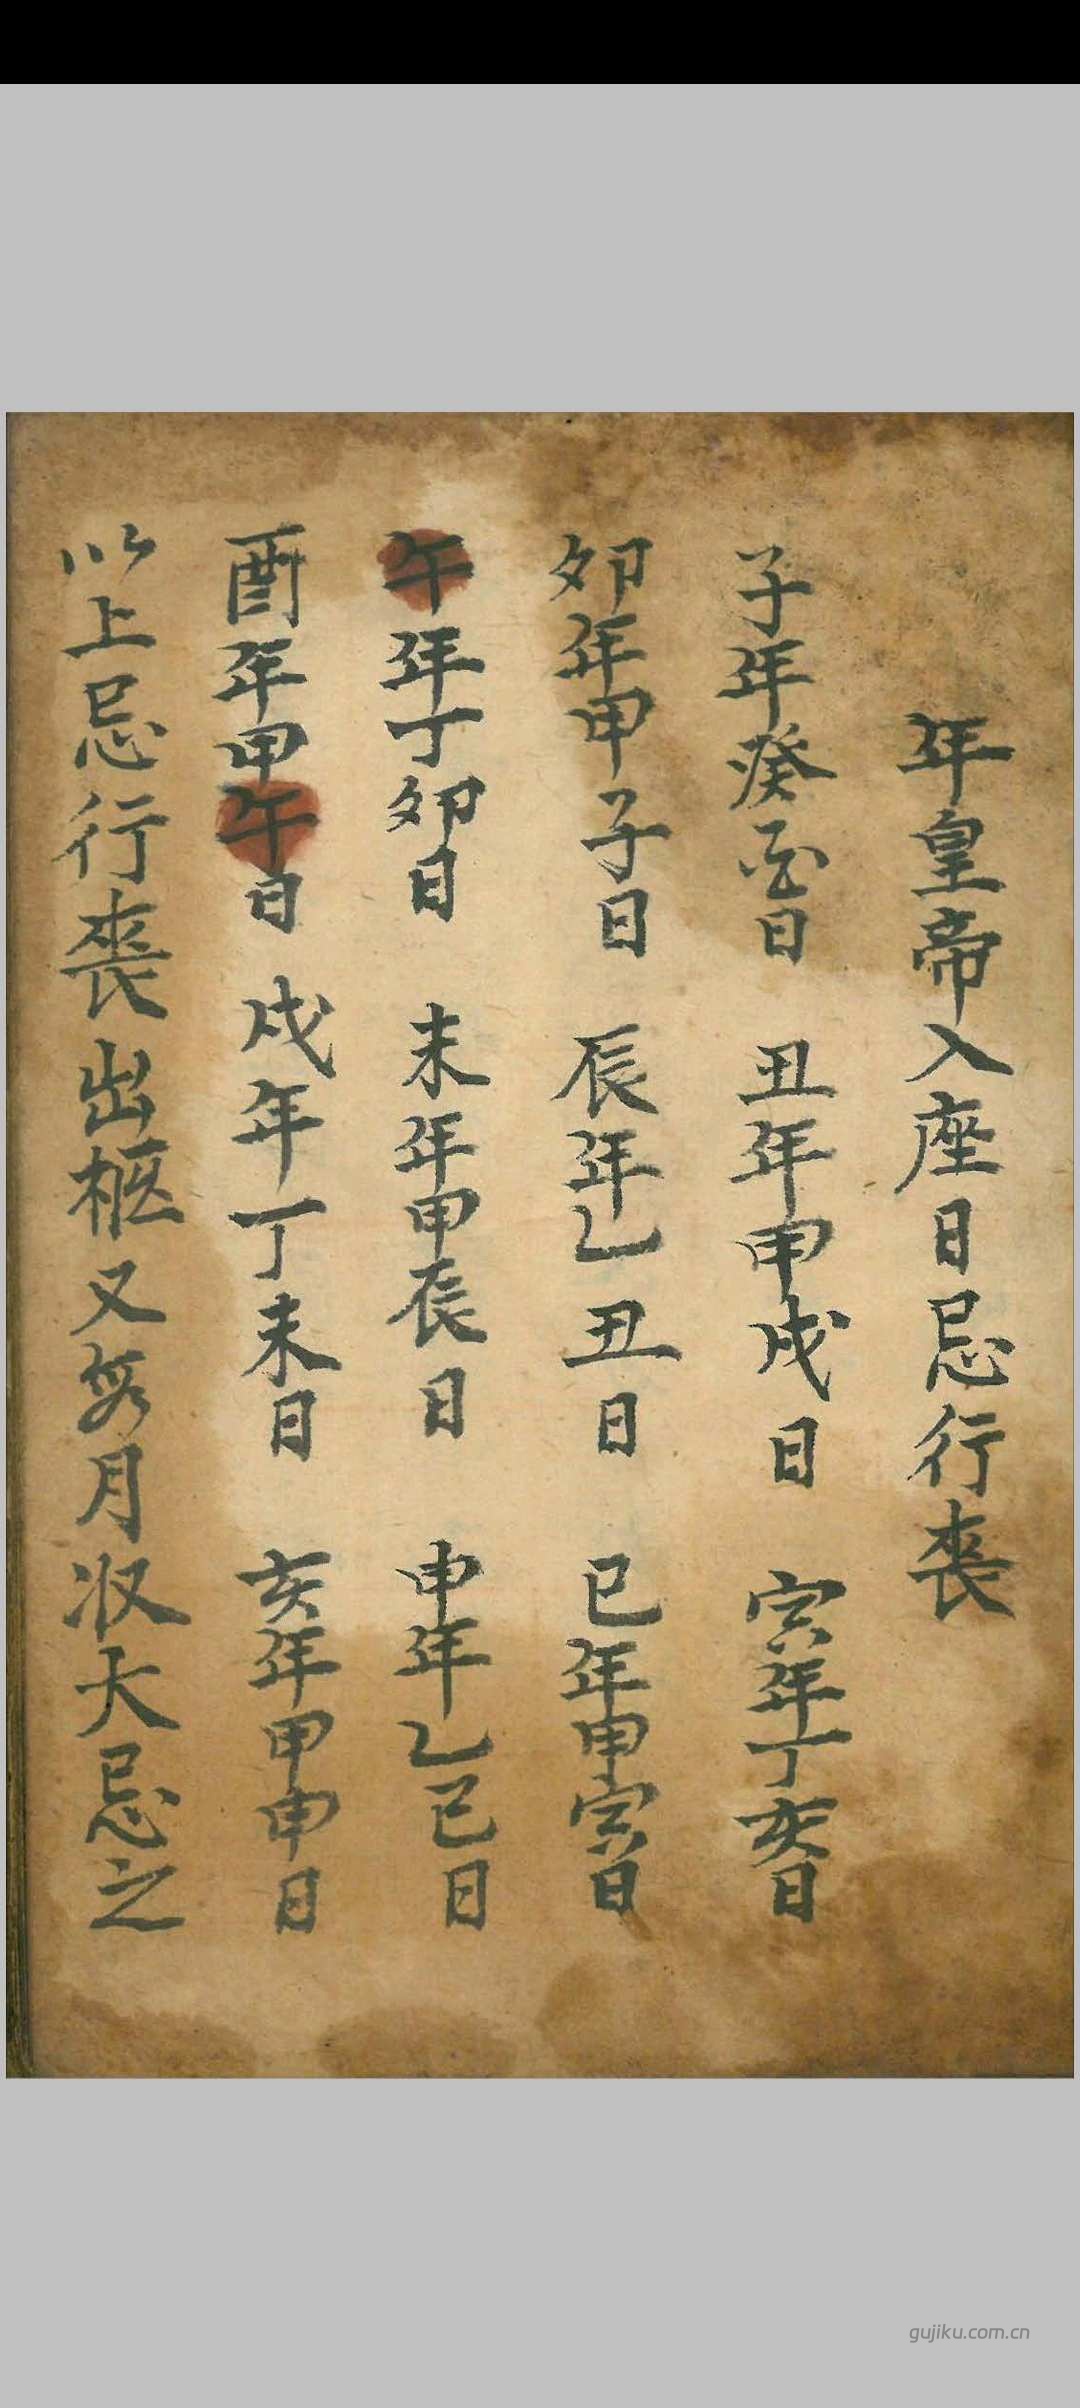 年皇帝入座日忌行喪
子年癸酉日 丑年甲戌日 寅年丁亥日
卯年甲子日 辰年乙丑日 巳年甲寅日
午年丁卯日 未年甲辰日 申年乙巳日
酉年甲午日 戌年丁未日 亥年甲申日
以上忌行喪出柩又每月收大忌之
gujiku.com.cn